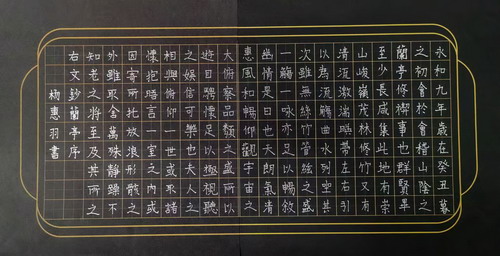 永和九年歲在癸丑暮
之初會於會稽山陰之
蘭亭修禊事也群賢畢
至少長咸集此地有崇
山峻嶺茂林修竹又有
清流激湍暎帶左右引
以為流觴曲水列坐其
次雖無絲竹管絃之盛
一觴一詠亦足以暢敘
幽情是日也天朗氣清
惠風和暢仰觀宇宙之
大俯察品類之盛所以
遊目騁懷足以極視聽
之娛信可樂也夫人之
相與俯仰一世或取諸
懷抱晤言一室之內或
因寄所託放浪形骸之
外雖取舍萬殊靜躁不
知老之將至及其所之
右文鈔蘭亭序
惠羽書